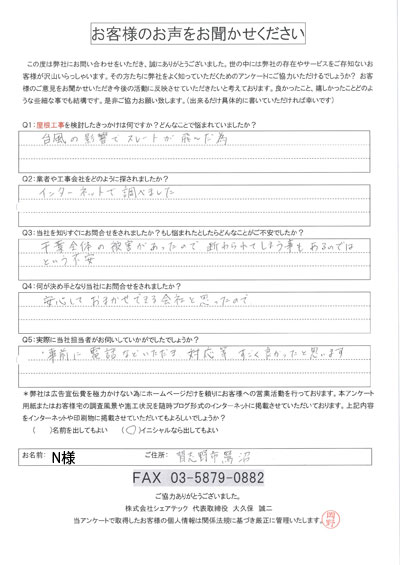 お客様のお声をお聞かせください
この度は弊社にお問い合わせをいただき、誠にありがとうございました。世の中には弊社の存在やサービスをご存知ないお
客様が沢山いらっしゃいます。その方たちに弊社をよく知っていただくためのアンケートにご協力いただけるでしょうか? お客
様のご意見をお聞かせいただき今後の活動に反映させていただきたいと考えております。良かったこと、嬉しかったことどのよ
うな些細な事でも結構です。是非ご協力お願い致します。(出来るだけ具体的に書いていただければ幸いです)
Q1:屋根工事を検討したきっかけは何ですか?どんなことで悩まれていましたか?
台風の影響でスレートが飛んだ為
Q2:業者や工事会社をどのように探されましたか?
インターネットで調べました
Q3:当社を知りすぐにお問合せをされましたか?もし悩まれたとしたらどんなことがご不安でしたか?
千葉全体の被害があったので 断わられてしまう事もあるのでは
という不安
Q4:何が決め手となり当社にお問合せをされましたか?
安心しておまかせできる会社と思ったので
Q5:実際に当社担当者がお伺いしていかがでしたでしょうか?
事前に電話などいただき 対応等 すごく良かったと思います
*弊社は広告宣伝費を極力かけない為にホームページだけを頼りにお客様への営業活動を行っております。本アンケート
用紙またはお客様宅の調査風景や施工状況を随時ブログ形式のインターネットに掲載させていただいております。上記内容
をインターネットや印刷物に掲載させていただいてもよろしいでしょうか?
( )名前を出してもよい (○)イニシャルなら出してもよい
お名前: N様 ご住所: 習志野市鷺沼
FAX 03-5879-0882
ご協力ありがとうございました。
株式会社シェアテック 代表取締役 大久保 誠二
当アンケートで取得したお客様の個人情報は関係法規に基づき厳正に管理いたします。